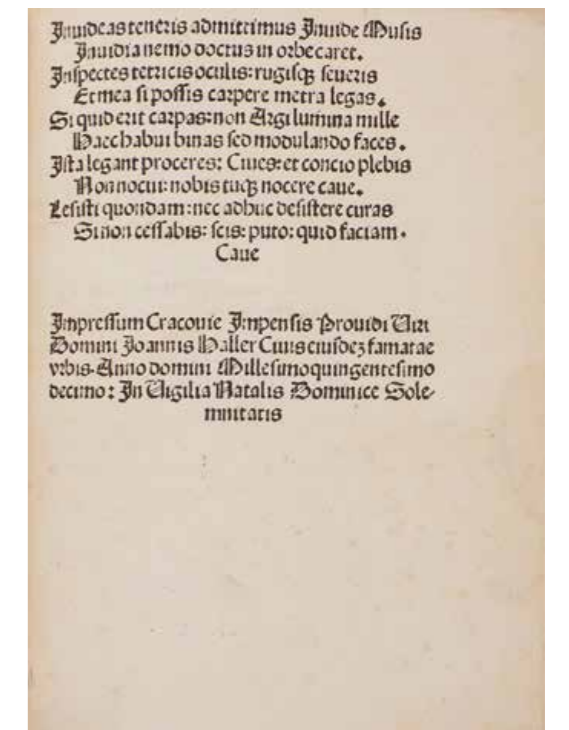 Inuideas teneris admittimus Inuide Musis
Inuidia nemo doctus in orbe caret.
Inspectes tetricis oculis: rugisqꝫ seueris
Et mea si possis carpere metra legas.
Si quid erit carpas: non Argi lumina mille
Haec habui binas sed modulando faces.
Ista legant proceres: Ciues: et concio plebis
Non nocui: nobis tuqꝫ nocere caue.
Lesisti quondam: nec adhuc desistere curas
Si non cessabis: scis: puto: quid faciam.
Caue
Impressum Cracouie Impensis Prouidi Uiri
Domini Joannis Haller Ciuis eiusdeꝫ famatae
vrbis. Anno domini Millesimoquingentesimo
decimo: In Uigilia Natalis Dominice Sole-
mnitatis